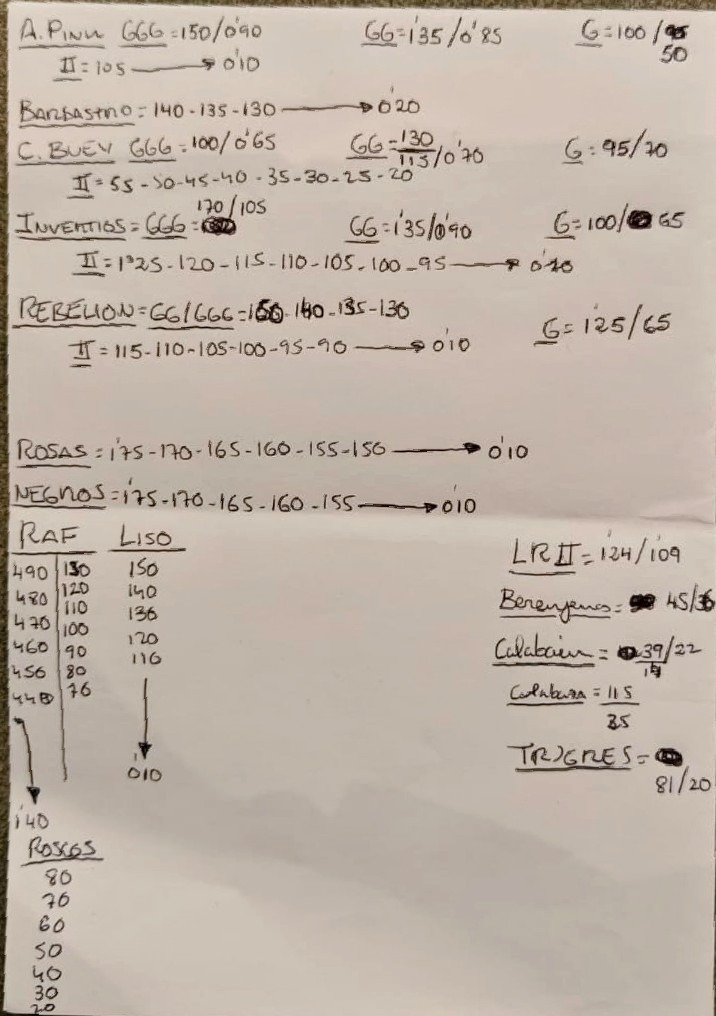 A. PINK GGG = 150/0'90 GG = 1'35/0'85 G = 100/50
II = 105 → 0'10
BARBASTRO = 140-135-130 → 0'20
C. BUEY GGG = 100/0'65 GG = 130/115/0'70 G: 95/70
II = 55-50-45-40-35-30-25-20
INVERTIGS = GGG = 170/105 GG = 1'35/0'90 G = 100/65
II = 1'25-120-115-110-105-100-95 → 0'20
REBELION = GG/GGG = 150-140-135-130 G = 1'25/65
II = 115-110-105-100-95-90 → 0'10
ROSAS = 1'75-170-165-160-155-150 → 0'10
NEGROS = 1'75-170-165-160-155 → 0'10
RAF LISO
490 130 150
480 120 140
470 110 130
460 100 120
450 90 110
440 80
70
↓ 0'10
↓ 1'40
LR II = 1'24/1'09
Berenjenas = 45/36
Calabacin = 39/22
Calabaza = 115
35
TRIGRES =
81/20
ROSCOS
80
70
60
50
40
30
20